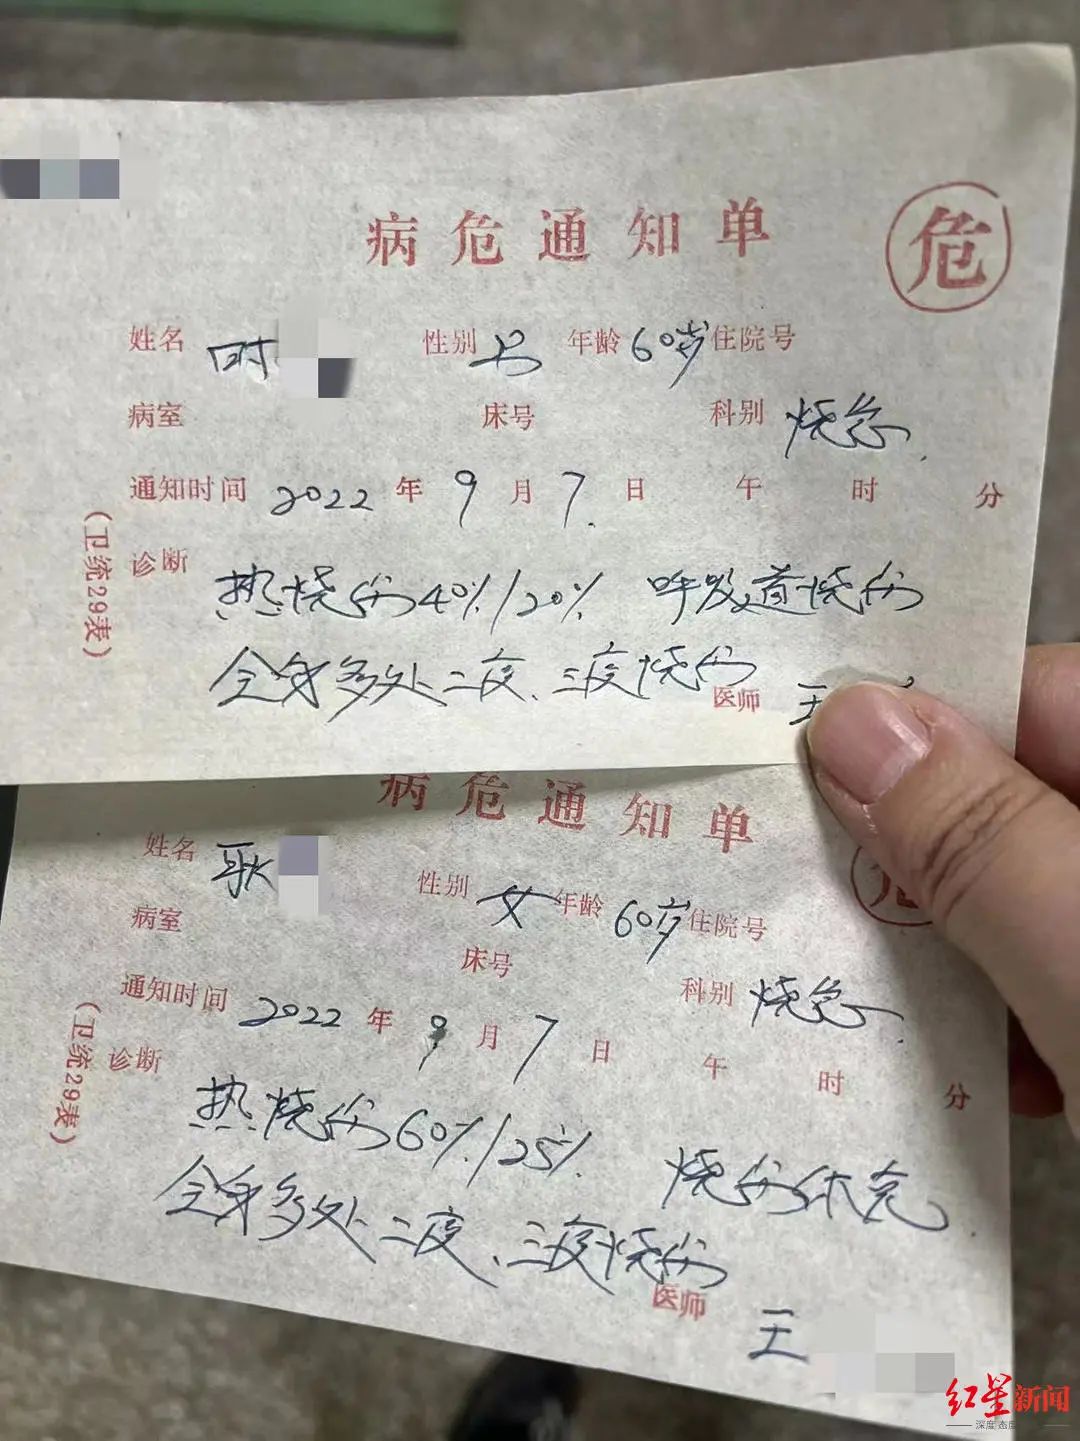 病危通知单 危
姓名 时 性别 男 年龄 60岁 住院号
病室 床号 科别 烧急
通知时间 2022 年 9 月 7 日 午 时 分
诊断 热烧伤40%/20% 呼吸道烧伤
全身多处二度、三度烧伤
医师 王
(卫统29表)
病危通知单 危
姓名 耿 性别 女 年龄 60岁 住院号
病室 床号 科别 烧急
通知时间 2022 年 9 月 7 日 午 时 分
诊断 热烧伤60%/25% 烧伤休克
全身多处二度、三度烧伤
医师 王
(卫统29表)
红星新闻
深度 态度